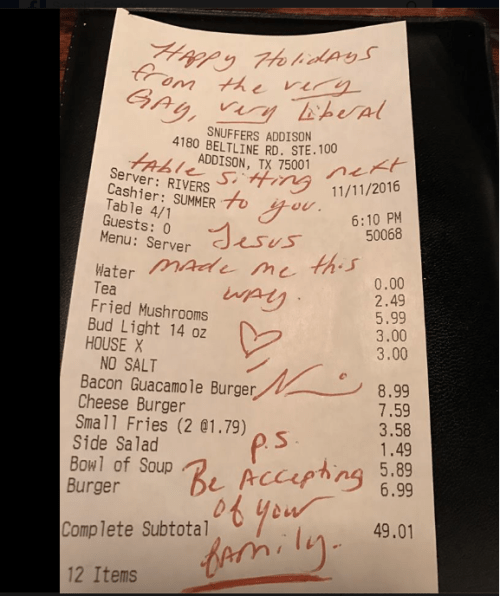 Happy Holidays
from the very
GAy, very liberal
SNUFFERS ADDISON
4180 BELTLINE RD. STE.100
ADDISON, TX 75001
table sitting next
Server: RIVERS 11/11/2016
Cashier: SUMMER to you.
Table 4/1 6:10 PM
Guests: 0 Jesus 50068
Menu: Server
made me this
Water 0.00
way.
Tea 2.49
Fried Mushrooms 5.99
Bud Light 14 oz 3.00
HOUSE X 3.00
NO SALT
Bacon Guacamole Burger 8.99
Cheese Burger 7.59
Small Fries (2 @1.79) 3.58
p.s.
Side Salad 1.49
Bowl of Soup 5.89
Be Accepting
Burger 6.99
of your
Complete Subtotal 49.01
family.
12 Items